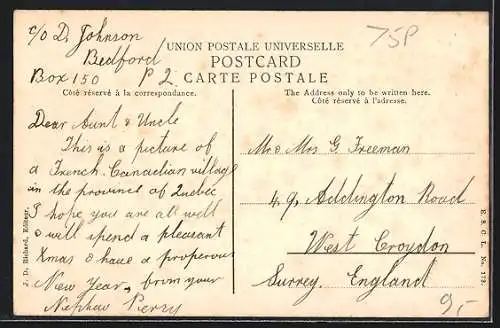 c/o D. Johnson
Bedford
Box 150 P 2
75P
UNION POSTALE UNIVERSELLE
POSTCARD
CARTE POSTALE
Côté réservé à la correspondance.
The Address only to be written here.
Côté réservé à l'adresse.
Dear Aunt & Uncle
This is a picture of
a French Canadian village
in the province of Quebec
I hope you are all well
& will spend a pleasant
Xmas & have a properous
New Year, from your
Nephew Perry
Mr & Mrs G. Freeman
49, Addington Road
West Croydon
Surrey. England
J. D. Richard, Editeur.
E. S. C. L. No. 173.
9,-